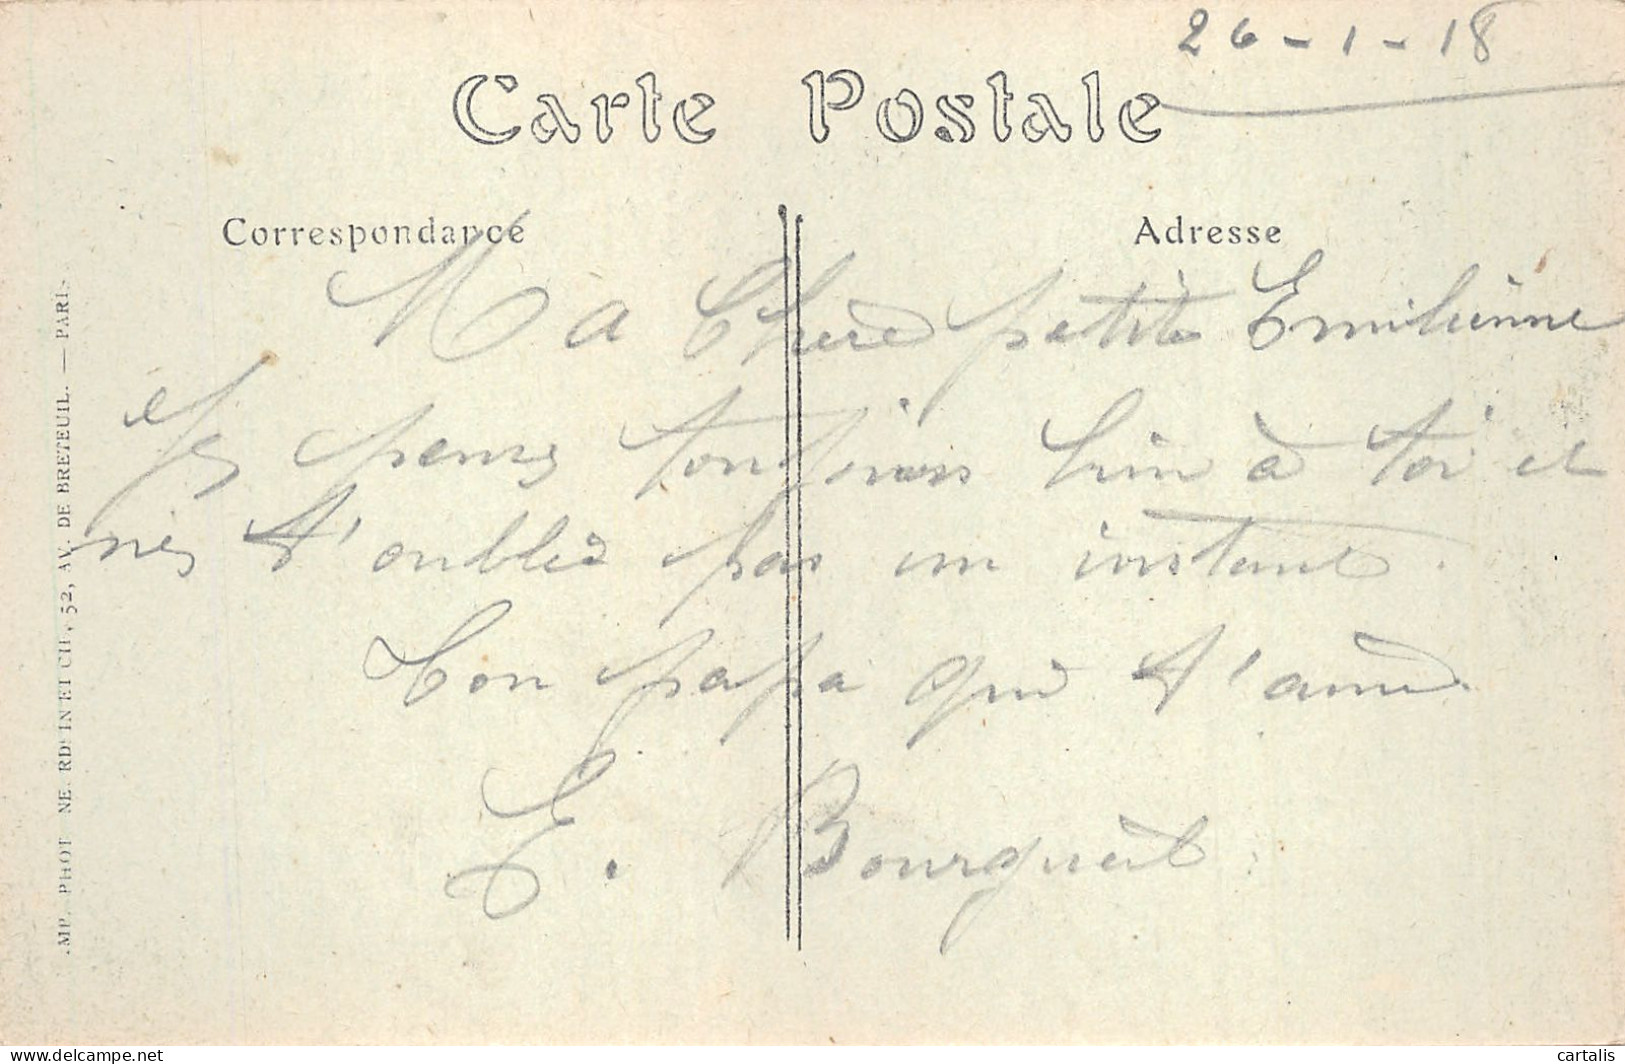 26-1-18
Carte Postale
Correspondance
Adresse
Ma Chere petite Emilienne
Je pense toujours bien à toi et
ne t'oublie pas un instant.
Ton papa qui t'aime.
E. Bourgueil
IMP. PHOT. NEURDEIN ET Cie, 52, AV. DE BRETEUIL. — PARIS.
www.delcampe.net
cartalis